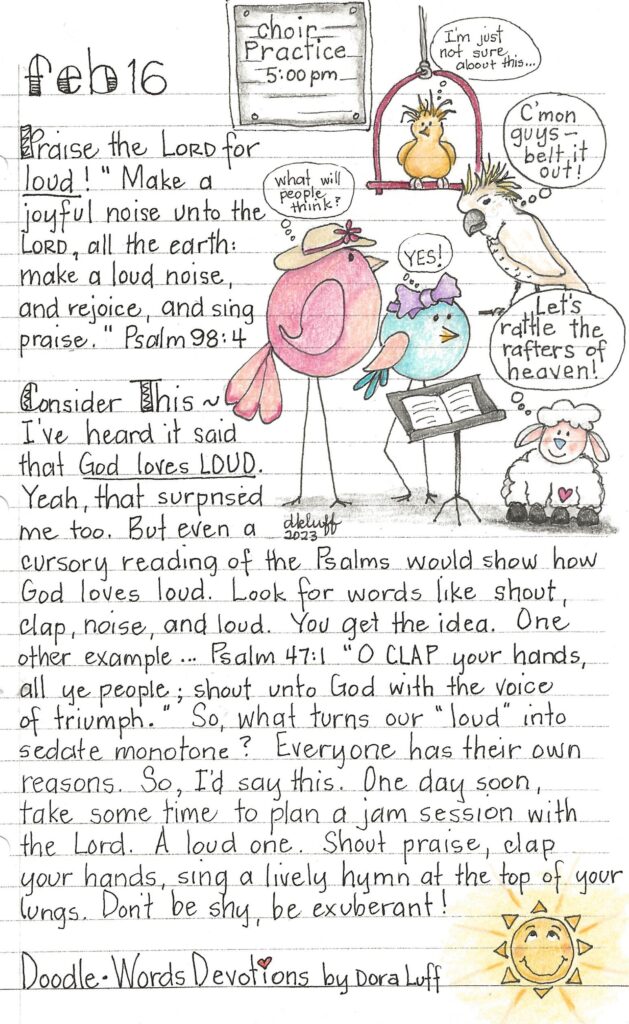 feb 16
choir
Practice
5:00 pm
I'm just
not sure
about this...
C'mon
guys –
belt it
out!
what will
people
think?
YES!
Let's
rattle the
rafters of
heaven!
Praise the LORD for
loud! " Make a
joyful noise unto the
LORD, all the earth:
make a loud noise,
and rejoice, and sing
praise." Psalm 98:4
Consider This ~
I've heard it said
that God loves LOUD.
Yeah, that surprised
me too. But even a
cursory reading of the Psalms would show how
God loves loud. Look for words like shout,
clap, noise, and loud. You get the idea. One
other example ... Psalm 47:1 "O CLAP your hands,
all ye people; shout unto God with the voice
of triumph." So, what turns our "loud" into
sedate monotone? Everyone has their own
reasons. So, I'd say this. One day soon,
take some time to plan a jam session with
the Lord. A loud one. Shout praise, clap
your hands, sing a lively hymn at the top of your
lungs. Don't be shy, be exuberant!
dkluff
2023
Doodle • Words Devotions by Dora Luff